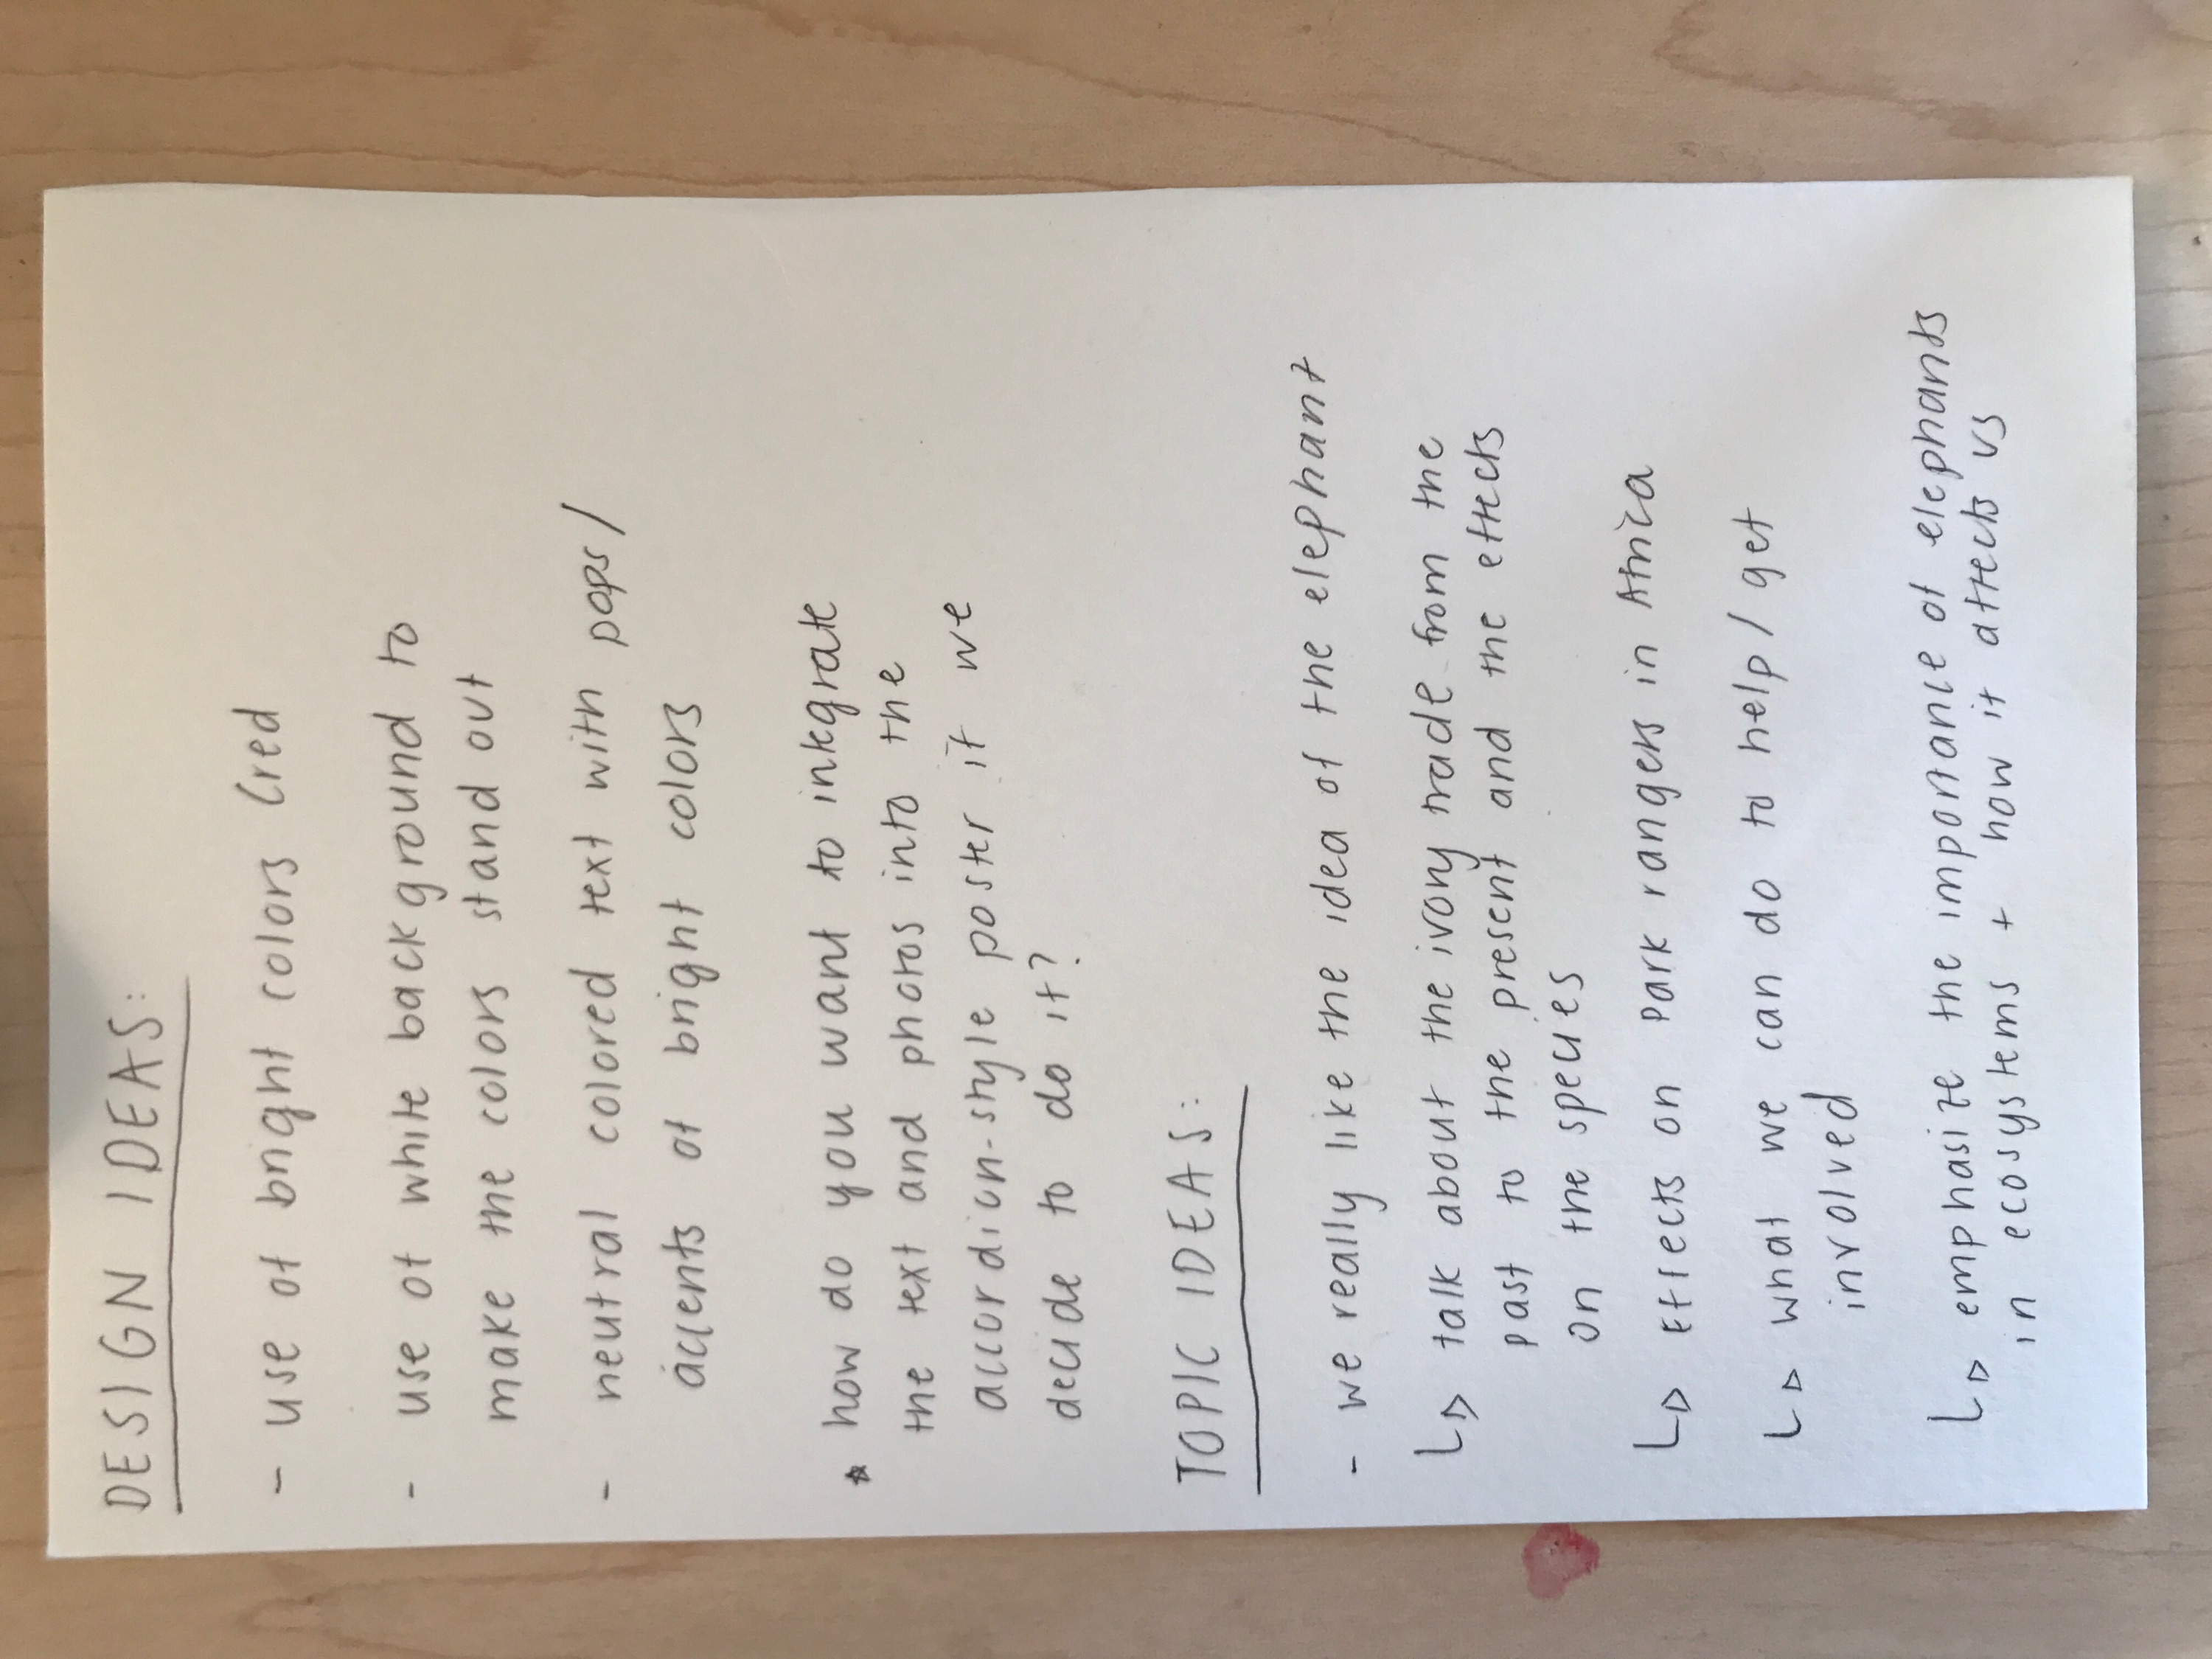 DESIGN IDEAS:
- use of bright colors (red
- use of white background to
make the colors stand out
- neutral colored text with pops/
accents of bright colors
* how do you want to integrate
the text and photos into the
accordion-style poster if we
decide to do it?
TOPIC IDEAS:
- we really like the idea of the elephant
↳ talk about the ivory trade from the
past to the present and the effects
on the species
↳ Effects on Park rangers in Africa
↳ what we can do to help/get
involved
↳ emphasize the importance of elephants
in ecosystems + how it affects us